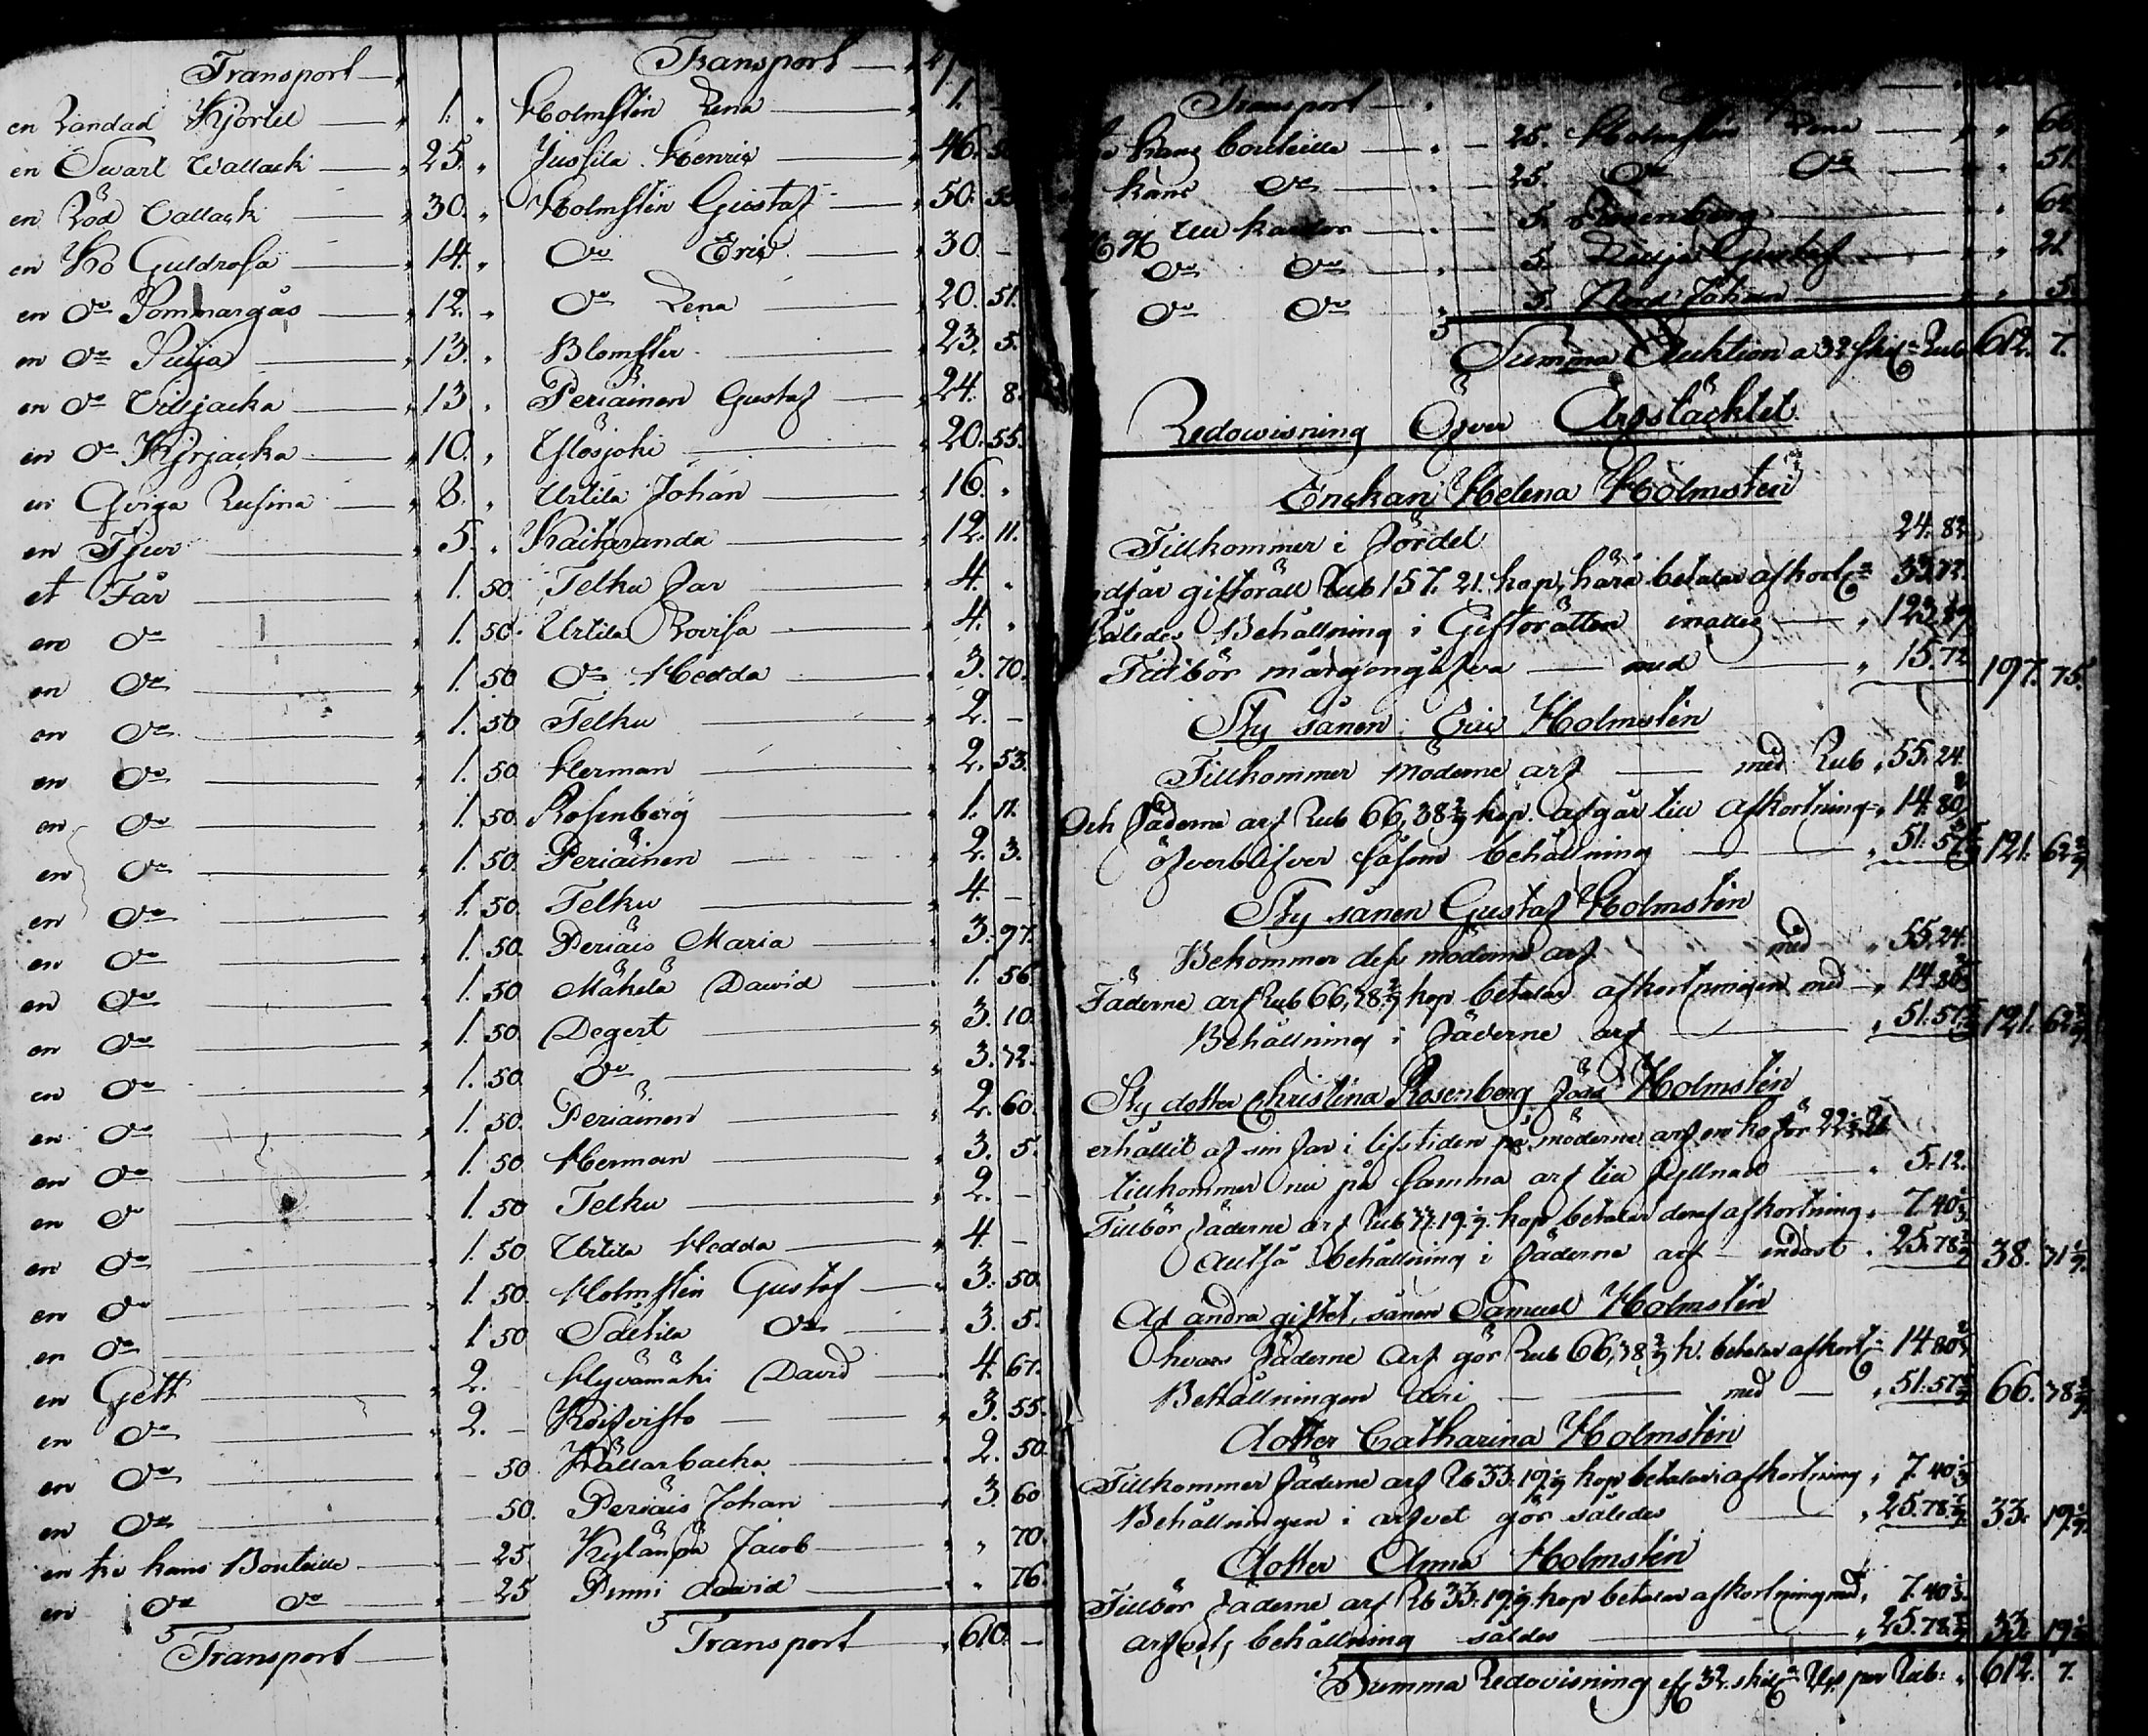 Transport — Transport —
en Randad Kjortel — 1. „ Holmstén Lena — 1. –
en Swart Vallack — 25. „ Jussila Henric — 46.
en Röd Vallack — 30. „ Holmstén Gustaf — 50.
en Ko Guldrosa — 14. „ Do Eric — 30. –
en Do Sommargås — 12. „ Do Lena — 20. 51.
en Do — 13. „ Blomster — 23. 5.
en Do Villjacka — 13 „ Periäinen Gustaf — 24. 8.
en Do Kirjacka — 10. „ Ylösjoki — 20. 55.
en Qviga Rusina — 8. „ Urtila Johan — 16. „
en Tjur — 5. „ Kaitaranda — 12. 11.
et Får — 1. 50. Telku Far — 4. „
en Do — 1. 50. Urtila Lovisa — 4. „
en Do — 1. 50 Do Hedda — 3. 70.
en Do — 1. 50 Telku — 2. –
en Do — 1. 50 Herman — 2. 53.
en Do — 1. 50. Rosenberg — 1. 71.
en Do — 1. 50. Periäinen — 2. 3.
en Do — 1. 50. Telku — 4. –
en Do — 1. 50. Periäis Maria — 3. 97.
en Do — 1. 50 Mäkelä David — 1. 56
en Do — 1. 50. Degert — 3. 10.
en Do — 1. 50 Do — 3. 72.
en Do — 1. 50. Periäinen — 2. 60.
en Do — 1. 50 Herman — 3. 5.
en Do — 1. 50 Telku — 2. –
en Do — 1. 50. Urtila Hedda — 4. –
en Do — 1. 50. Holmstén Gustaf — 3. 50.
en Do — 1 50 Do — 3. 5.
en Gett — 2. – Hyvämäki David — 4. 67.
en Do — 2. – Koifvisto — 3. 55.
en Do — – 50. Källarbacka — 2. 50.
en Do — – 50. Periäis Johan — 3. 60
en tre kans Bouteille — – 25 Kylänpä Jacob — „ 70.
en Do Do — – 25 Pinni David — „ 76.
Transport — Transport — 610. –
Transport —
kans Bouteille — – 25. Holmstén Lena — „ 66
kans Do — – 25. Do Do — „ 51.
till kardor — – 5. Rosenberg — „ 62
Do Do — – 5. Gustaf — „ 21
Do Do — – 5. Nord Johan — „ 5.
Summa Auktion a 32 skil. Rub 612. 7.
Redowisning Öfver Arfstäcktet
Enckan Helena Holmstén
Tillkommer i Fördel 24. 82
giftorätt Rub 157. 21. kop. härå betalar afkort. 33.72.
således Behållning i Giftorätten inalles — „ 123.
Tillbör mårgongåfva — med — „ 15.72 197. 75.
Sty sånen Eric Holmstén
Tillkommer möderne arf — med Rub „ 55.24.
Och fäderne arf Rub 66,38 2/9 kop. afgår till afkortning „ 14.80
öfverblifver såsom behållning — „ 51.57 121. 62 2/9
Sty sånen Gustaf Holmstén
Bekommer dess möderne arf med „ 55.24.
Fäderne arf Rub 66,38 2/9 kop betalar afkortningen med „ 14.80
Behållning i fäderne arf — „ 51.57 121. 62 2/9
Sty dotter Christina Rosenberg född Holmstén
erhållit af sin far i lifstiden på möderne arf en ko för
tillkommer nu på samma arf till fyllnad — „ 5.12.
Tillbör fäderne arf Rub 33.19 1/9. kop betalar deraf afkortning „ 7.40 1/3
Alltså behållning i fäderne arf endast „ 25.78 7/9 38. 31 1/9.
Af andra giftet, sånen Samuel Holmstén
hvars fäderne Arf gör Rub 66,38 2/9 k. betalar afkort. 14.80
Behållningen — med — „ 51.57 66. 38 2/9
dotter Catharina Holmstén
Tillkommer fäderne arf Rb 33.19 1/9 kop betalar i afkortning „ 7.40 1/3
Behållningen i arfvet gör således — „ 25.78 7/9. 33. 19 1/9.
dotter Anna Holmstén
Tillbör fäderne arf Rb 33.19 1/9. kop betalar afkortning med, 7.40 1/3.
arfvets behållning såldes — „ 25.78 7/9 33. 19 1/9
Summa Redovisning 32. skil. per Rub: „ 612. 7.